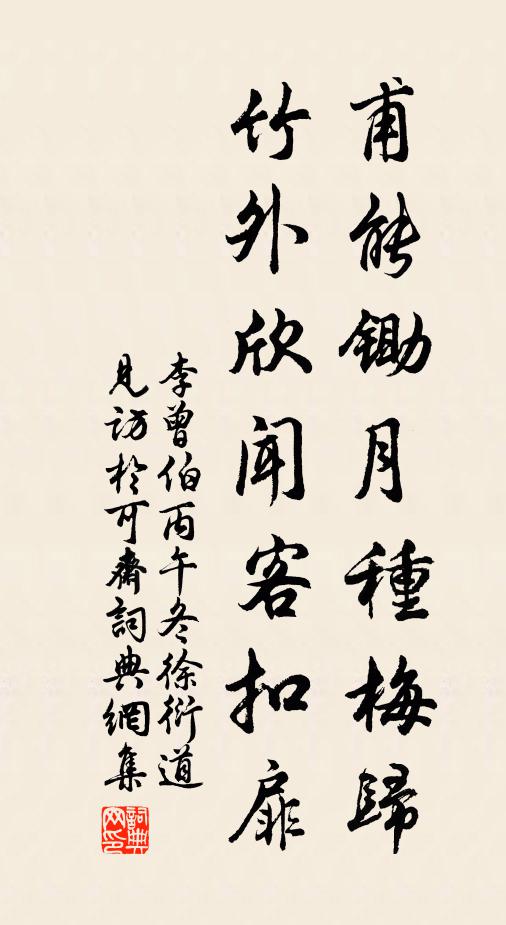 甫能鋤月種梅歸
竹外欣聞客扣扉
李曾伯丙午冬徐衍道
見訪於可齋詞典網集
詞典
网印